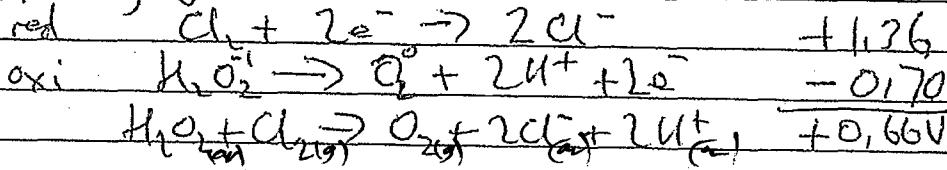 red Cl₂ + 2e⁻ → 2Cl⁻ +1,36
oxi H₂O₂⁻¹ → O₂⁰ + 2H⁺ + 2e⁻ -0,70
H₂O₂(aq) + Cl₂(g) → O₂(g) + 2Cl⁻(aq) + 2H⁺(aq) +0,66V